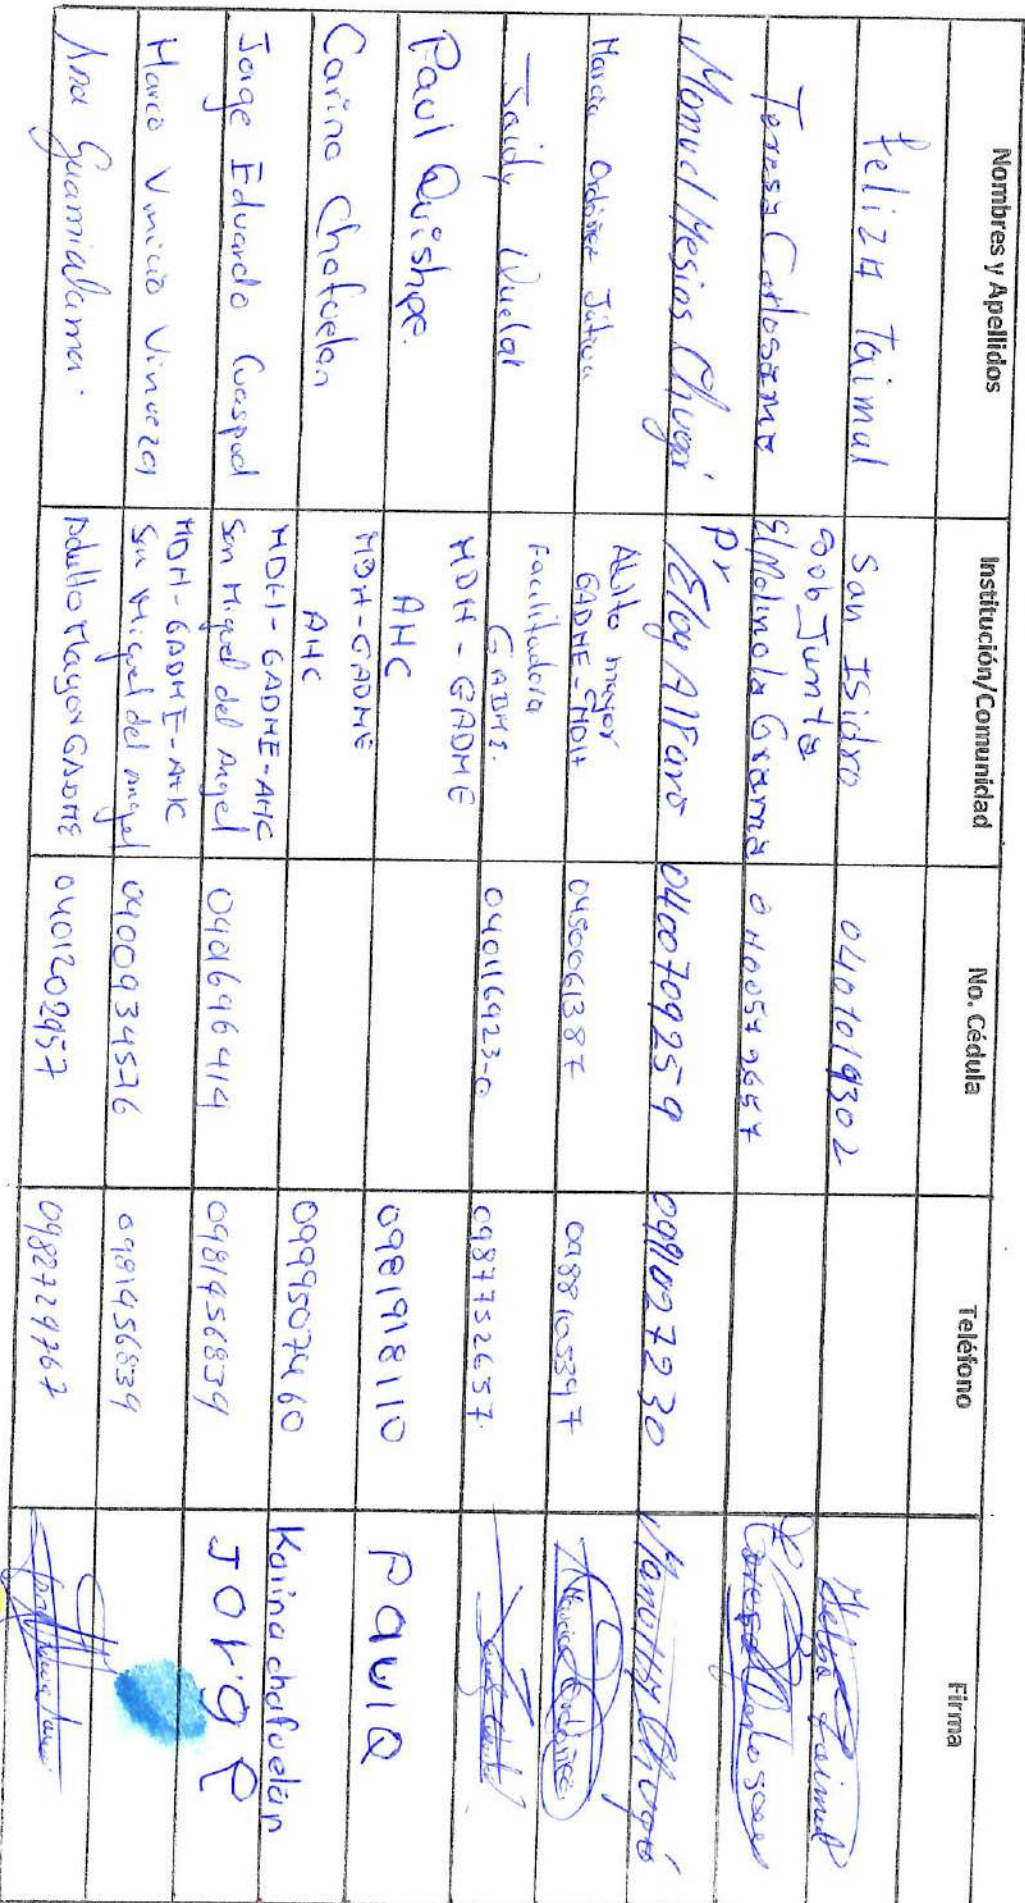 Nombres y Apellidos Institución/Comunidad No. Cédula Teléfono Firma
Feliza Taimal San Isidro 0401019302
Teresa Carlosama Goob Junta
El Molino la Grama 0400572657
Manuel Mesias Chugá Pr Eloy Alfaro 040070925-9 0991027230
Marcia Ordóñez Játiva Aulto mayor
GADME-MDH 0450061387
Saidy Cuelar Facilitadora
GADME. 040116923-0 0987732657
Paul Quishpe. MDH - GADME
AHC 0981918110 PaulQ
Carina Chafuelan MDH-GADME
AHC 0999507460 Karina chafuelán
Jorge Eduardo Cuaspud MDH-GADME-AHC
San Miguel del Angel 0401696414 0981456839 JORgE
Marco Vinicio Vinueza MDH-GADME-AHC
San Miguel del Angel 0400934576 0981456839
Ana Guamialama. Adulto Mayor GADME 0401202957 0982729767